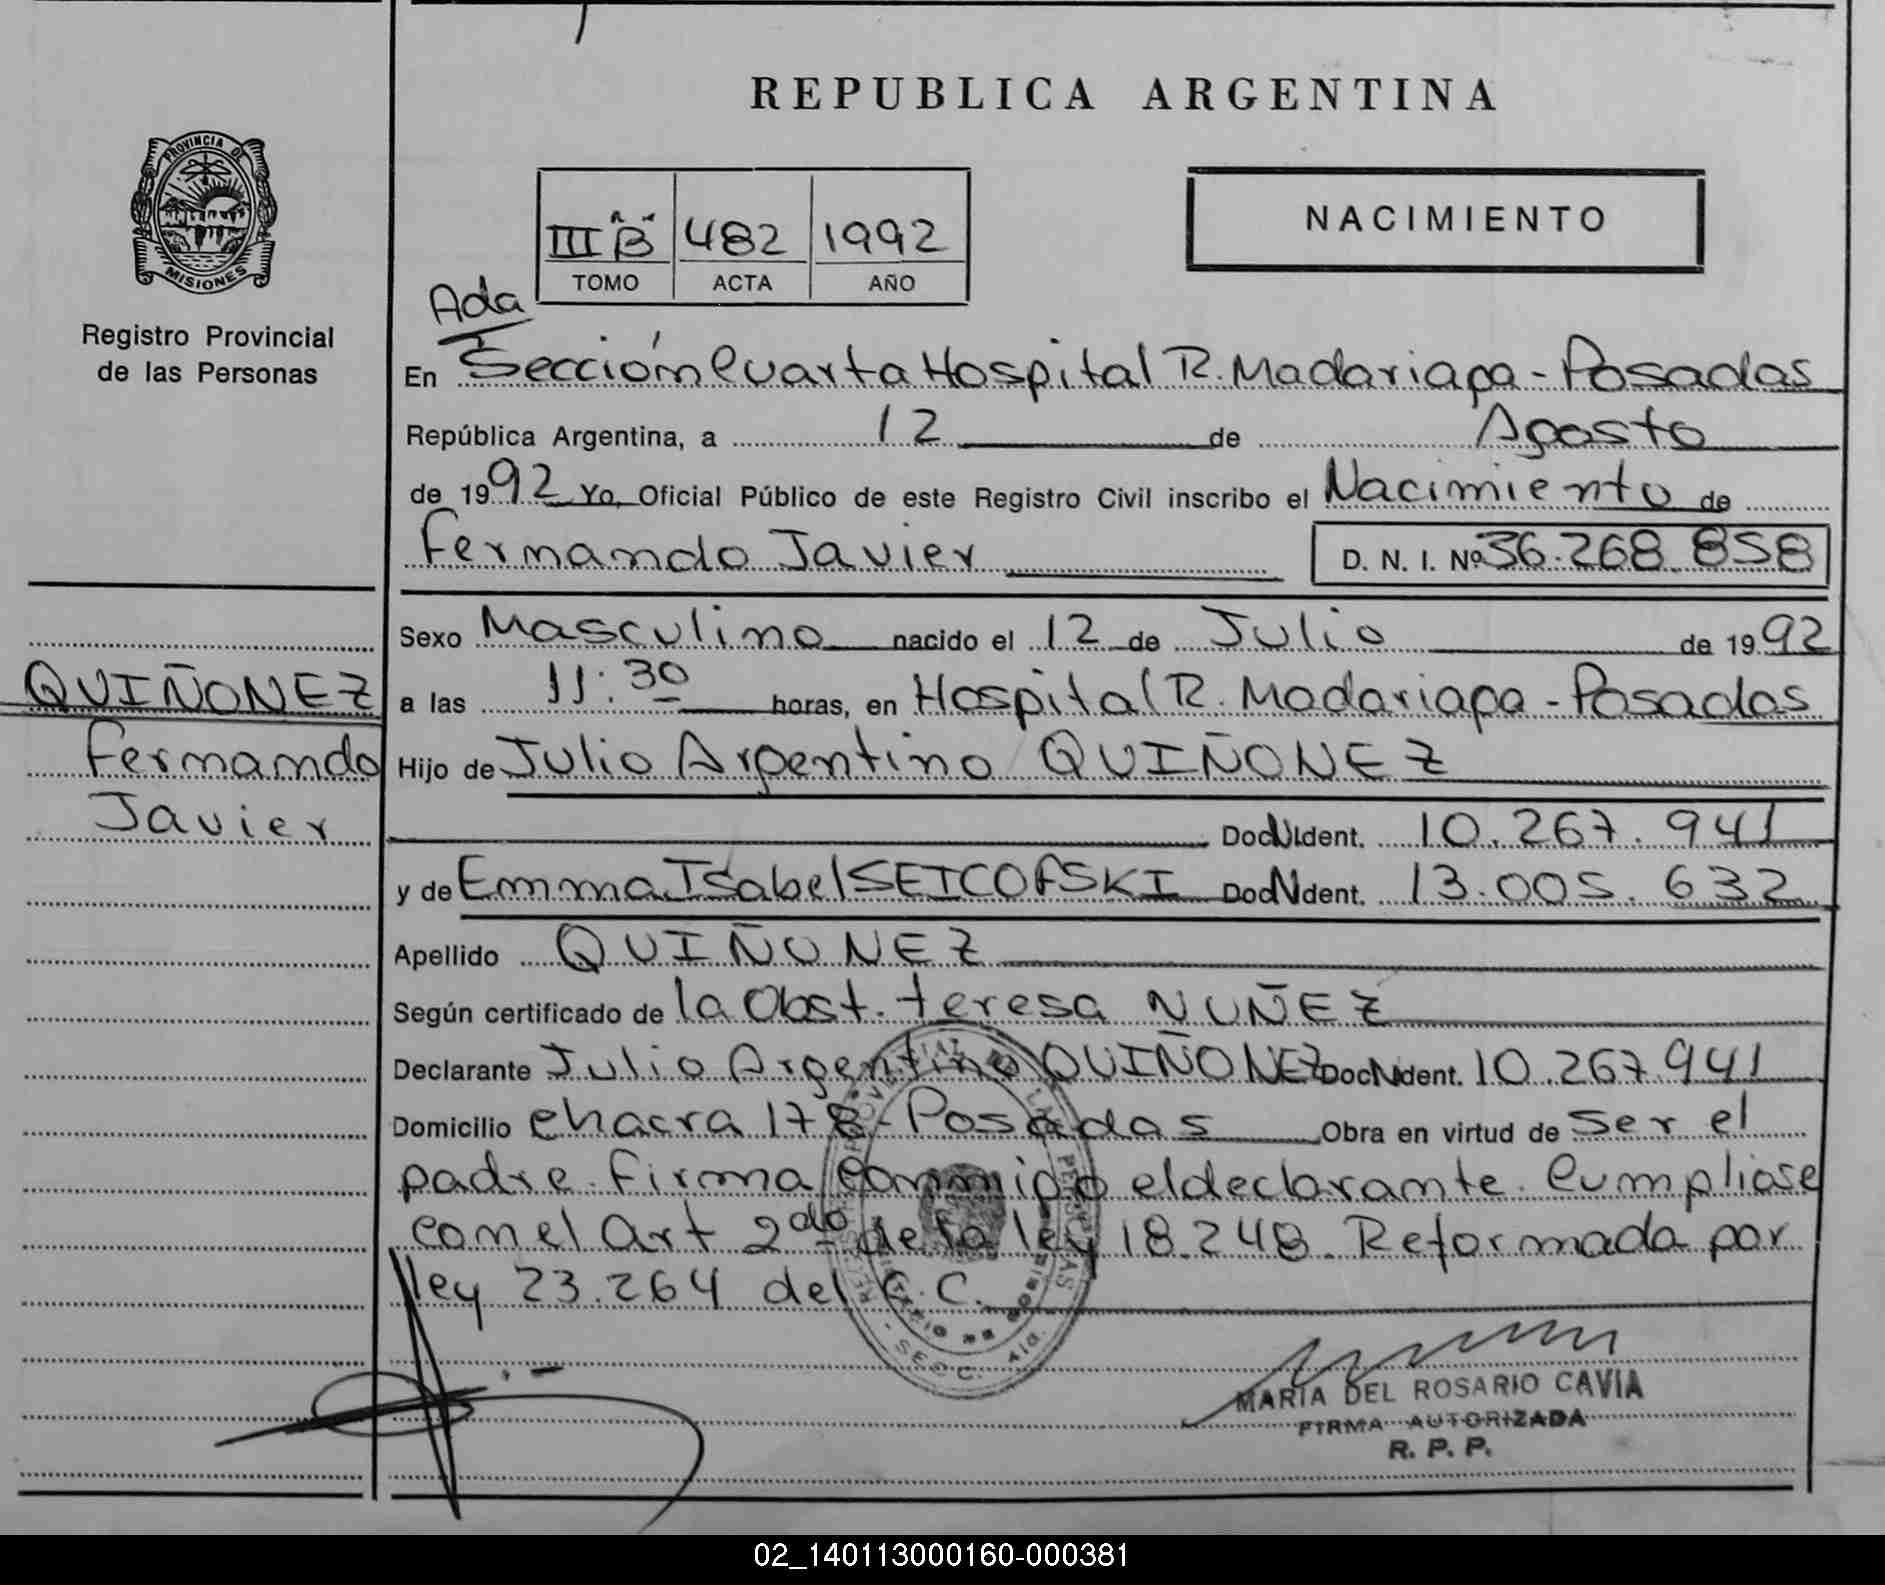 REPUBLICA ARGENTINA
PROVINCIA DE
MISIONES
Registro Provincial
de las Personas
III "B" 482 1992
TOMO ACTA AÑO
NACIMIENTO
Ada
En Sección Cuarta Hospital R. Madariaga - Posadas
República Argentina, a 12 de Agosto
de 1992 Yo, Oficial Público de este Registro Civil inscribo el Nacimiento de
Fernando Javier D. N. I. Nº 36.268.858
Sexo Masculino nacido el 12 de Julio de 1992
QUIÑONEZ
Fernando
Javier
a las 11:30 horas, en Hospital R. Madariaga - Posadas
Hijo de Julio Argentino QUIÑONEZ
Doc. N Ident. 10.267.941
y de Emma Isabel SEICOFSKI Doc. N Ident. 13.005.632
Apellido QUIÑONEZ
Según certificado de la Obst. teresa NUÑEZ
Declarante Julio Argentino QUIÑONEZ Doc. N Ident. 10.267.941
Domicilio chacra 178 - Posadas Obra en virtud de ser el
padre. Firma conmigo el declarante. Cumpliose
con el Art 2do de la ley 18.248. Reformada por
ley 23.264 del C.C.
MARIA DEL ROSARIO CAVIA
FIRMA AUTORIZADA
R. P. P.
02_140113000160-000381